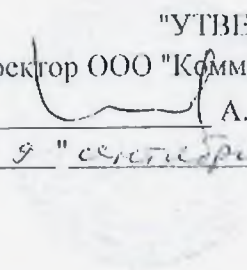 "УТВЕ
ректор ООО "Комм
А.
9 " сентябр